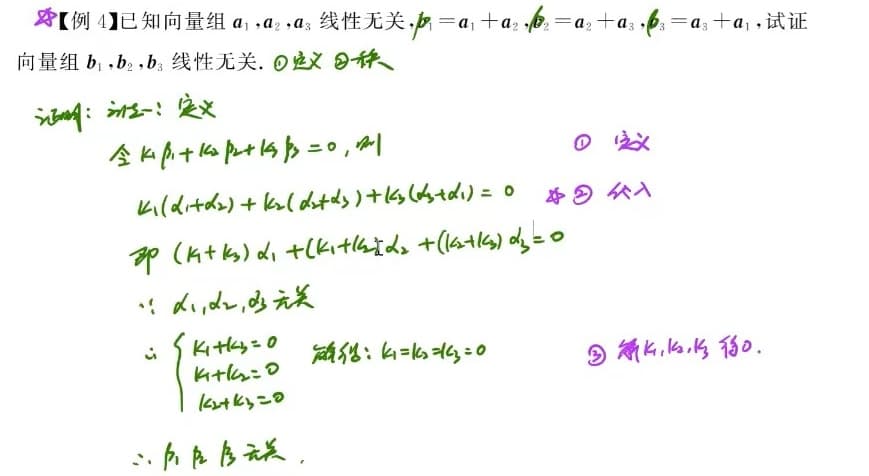 【例 4】已知向量组 a₁,a₂,a₃ 线性无关,β₁=a₁+a₂,β₂=a₂+a₃,β₃=a₃+a₁,试证
向量组 b₁,b₂,b₃ 线性无关. ①定义 ②秩
证明: 法一: 定义
令 k₁β₁+k₂β₂+k₃β₃=0, 则 ① 定义
k₁(α₁+α₂)+k₂(α₂+α₃)+k₃(α₃+α₁)=0 ② 代入
即 (k₁+k₃)α₁+(k₁+k₂)α₂+(k₂+k₃)α₃=0
∵ α₁,α₂,α₃无关
∴ { k₁+k₃=0 解得: k₁=k₂=k₃=0 ③ 解k₁,k₂,k₃ 得0.
k₁+k₂=0
k₂+k₃=0
∴ β₁ β₂ β₃无关.